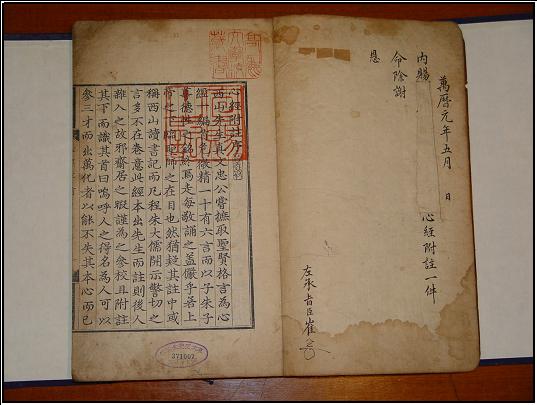 萬曆元年五月 日
內賜 心經附註一件
命除謝
恩
左承旨臣崔
心經附註序
西山先生真文忠公嘗摭取聖賢格言為心
經一編首危微精一十有六言而以子朱子
尊德性之銘終焉走每敬誦之蓋儼乎若上
帝之下臨聖師之在目也然猶疑其註中或
稱西山讀書記而凡程朱大儒開示警切之
言多不在卷意此經本出先生而註則後人
雜入之故邪齋居之暇謹為之參校且附註
其下而識其首曰嗚呼人之得名為人可以
參三才而出萬化者以能不失其本心而已
371007